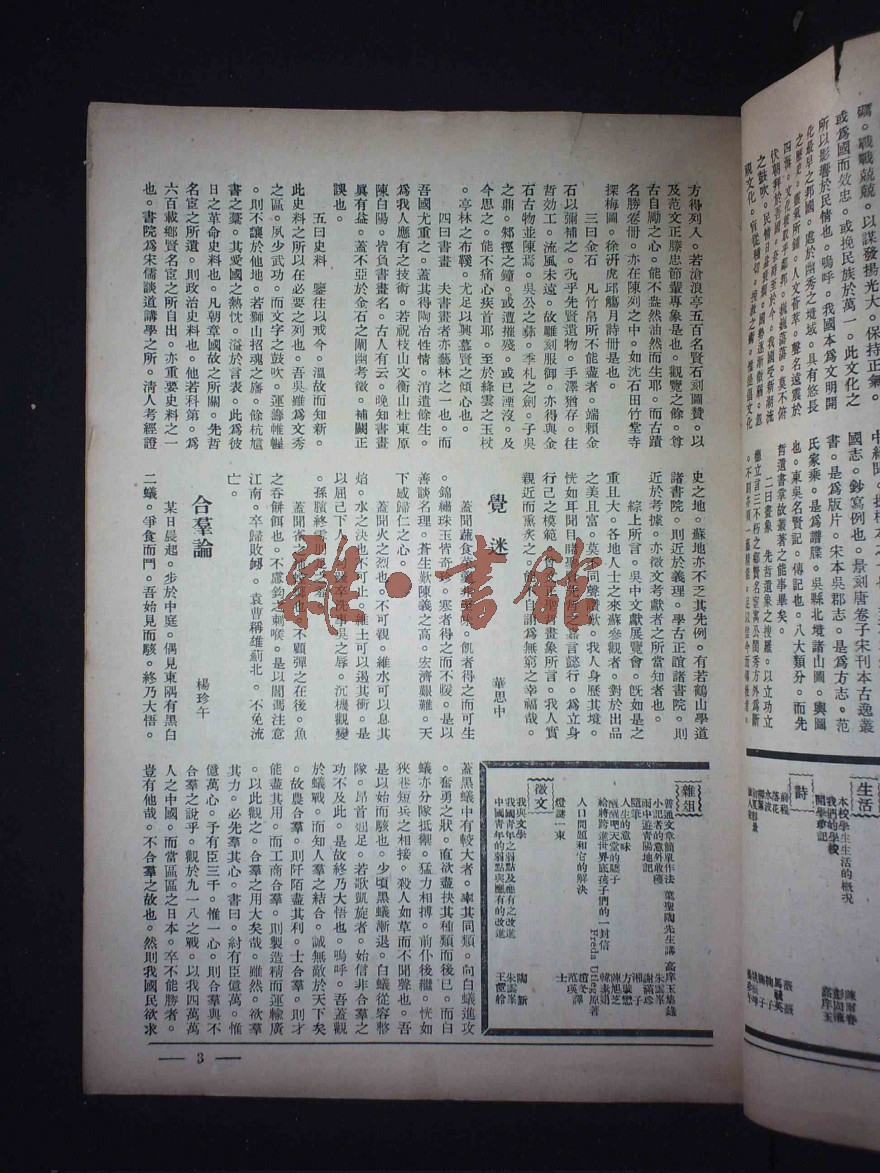 方得列入。若滄浪亭五百名賢石刻圖贊。以
及范文正滕忠節輩專象是也。觀覽之餘。尊
古自勵之心。能不盎然油然而生耶。而古蹟
名勝卷册。亦在陳列之中。如沈石田竹堂寺
探梅圖。徐洲虎邱觴月詩册是也。
三曰金石 凡竹帛所不能盡者。端賴金
石以彌補之。况乎先賢遺物。手澤猶存。往
哲効工。流風未遠。故雕刻服御。亦得與金
石古物並陳焉。吳公之彝。季札之劍。子吳
之鼎。邾㯳之鐘。或遭摧殘。或已湮沒。及
今思之。能不痛心疾首耶。至於絳雲之玉杖
。亭林之布韈。尤足以興慕賢之傾心也。
四曰書畫 夫書畫者亦藝林之一也。而
吾國尤重之。蓋其得陶冶性情。消遣餘生。
為我人應有之技術。若祝枝山文衡山杜東原
陳白陽。皆負書畫名。古人有云。晚知書畫
眞有益。蓋不亞於金石之闡幽考徵。補闕正
誤也。
五曰史料 鑒往以戒今。温故而知新。
此史料之所以在必要之列也。吾吳雖爲文秀
之區。夙少武功。而文字之鼓吹。運籌帷幄
。則不讓於他地。若獅山招魂之旛。餘杭尶
書之藁。其愛國之熱忱。溢於言表。此爲彼
日之革命史料也。凡朝章國故之所關。先哲
名宦之所遺。則政治史料也。他若科第。爲
六百載鄉賢名宦之所自出。亦重要史料之一
也。書院爲宋儒談道講學之所。淸人考經證
史之地。蘇地亦不乏其先例。有若鶴山學道
諸書院。則近於義理。學古正誼諸書院。則
近於考據。亦徵文考獻者之所當知者也。
綜上所言。吳中文獻展覽會。旣如是之
重且大。各地人士之來蘇參觀者。對於出品
之美且富。莫不同聲 我人身歷其境。
恍如耳聞目睹 先哲之嘉言懿行。爲立身
行己之模範。 畫象所言。我人實
親近而熏炙之。 不自 爲無窮之幸福哉。
覺迷
華思中
蓋聞蔬食 飢者得之而可生
。錦繡珠玉皆奇 寒者得之而不暖。是以
善談名理。蒼生歎陳義之高。宏濟艱難。天
下感歸仁之心。
蓋聞火之烈也。不可觀。維水可以息其
焰。水之决也不可止。維土可以遏其衝。是
以屈己下人 卒洗事吳之辱。沉機觀變
。孫臏終
蓋聞雀之 不顧彈之在後。魚
之吞餌也。不慮鈎之刺喉。是以闖馮注意
江南。卒歸敗衂。袁曹稱雄薊北。不免流
亡。
合羣論
楊珍午
某日晨起。步於中庭。偶見東隅有黑白
二蟻。爭食而鬥。吾始見而駭。終乃大悟。
蓋黑蟻中有較大者。率其同類。向白蟻進攻
。奮勇之狀。直欲盡抉其種類而後已。而白
蟻亦分隊抵禦。猛力相搏。前仆後繼。恍如
狹巷短兵之相接。殺人如草而不聞聲也。吾
是以始而駭也。少頃黑蟻漸退。白蟻從容整
隊。昂首翹足。若歌凱旋者。始信非合羣之
功不及此。是故終乃大悟也。嗚呼。吾蓋觀
於蟻戰。而知人羣之結合。誠無敵於天下矣
。故農合羣。則阡陌盡其利。士合羣。則才
能盡其用。而工商合羣。則製造精而運輸廣
。以此觀之。合羣之用大矣哉。雖然。欲羣
其力。必先羣其心。書曰。紂有臣億萬。惟
億萬心。予有臣三千。惟一心。則合羣與不
合羣之說乎。觀於九一八之戰。以我四萬萬
人之中國。而當區區之日本。卒不能勝者。
豈有他哉。不合羣之故也。然則我國民欲求
雜俎
普通文章簡單作法 葉聖陶先生講 高岸玉集錄
小記者的意外收穫 朱雲峯
雨中遊靑陽地記 謝滿珍
隨筆 湘子
人生的意味
醜醜吧天堂的驕子 陳旭芝
給將跨進世界底孩子們的一封信
Freda Utley原著
人口問題和它的解決
燈謎一束 士
徵文
我與文學 陶新
我國靑年之弱點及應有之改進 朱雲峯
中國靑年的弱點與應有的改進 王霞舲
— 3 —
礪。戰戰兢兢。以謀發揚光大。保持正氣。
或爲國而效忠。或挽民族於萬一。此文化之
所以影響於民情也。嗚呼。我國本爲文明開
化最早之邦國。處於幽秀之境域。具有悠長
國志。鈔寫例也。景刻唐卷子宋刊本古逸叢
書。是爲版片。宋本吳郡志。是爲方志。范
氏家乘。是爲譜牒。吳縣北境諸山圖。輿圖
也。東吳名賢記。傳記也。八大類分。而先
哲遺書掌故叢著之能事畢矣。
二曰畫象 先哲遺象之搜羅。以立功立
生活
本校學生生活的概況 陳爾春
我們的學校
開學夢記 高岸玉
詩
雜·書館